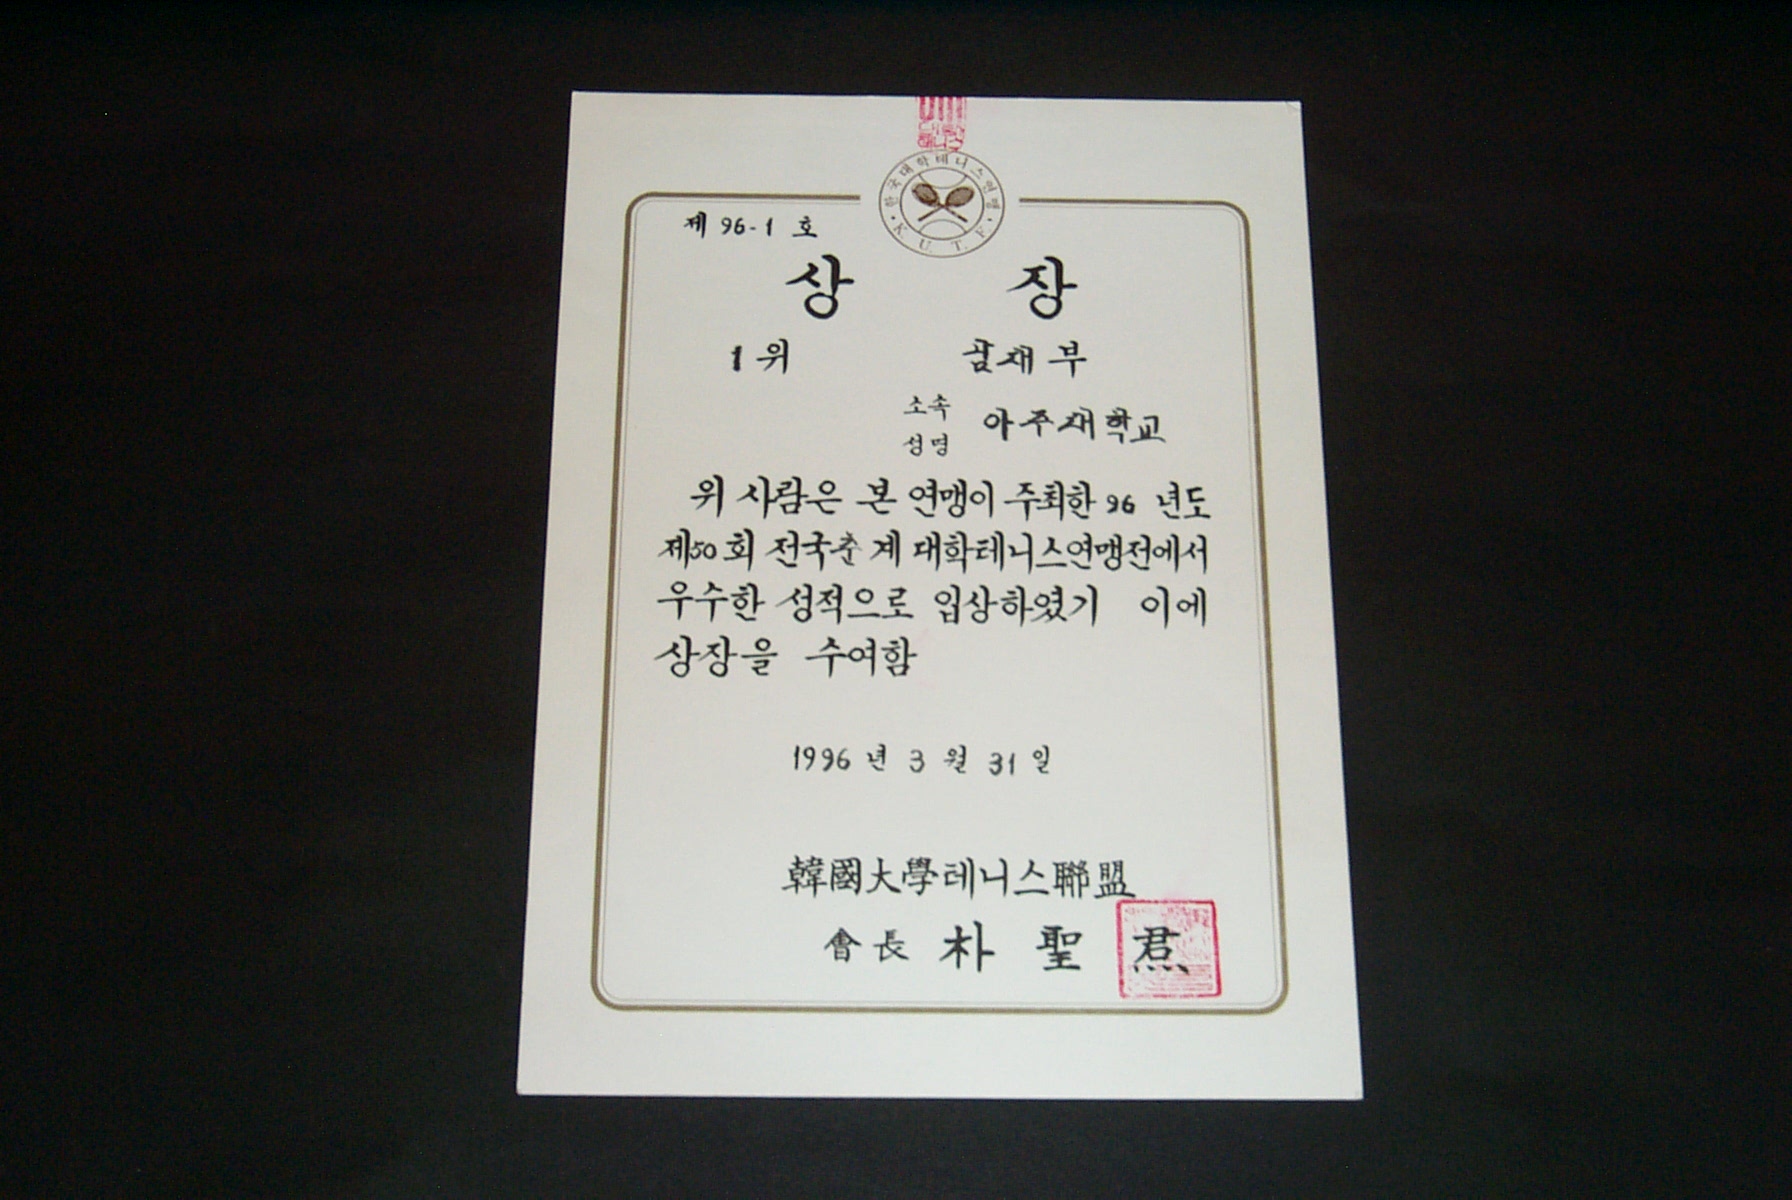 한국대학테니스연맹
K. U. T. F.
제 96-1 호
상 장
1 위
부
소속
성명
아주대학교
위 사람은 본 연맹이 주최한 96 년도
제50회 전국춘계 대학테니스연맹전에서
우수한 성적으로 입상하였기 이에
상장을 수여함
1996 년 3 월 31 일
韓國大學테니스聯盟
會長 朴 聖 焄